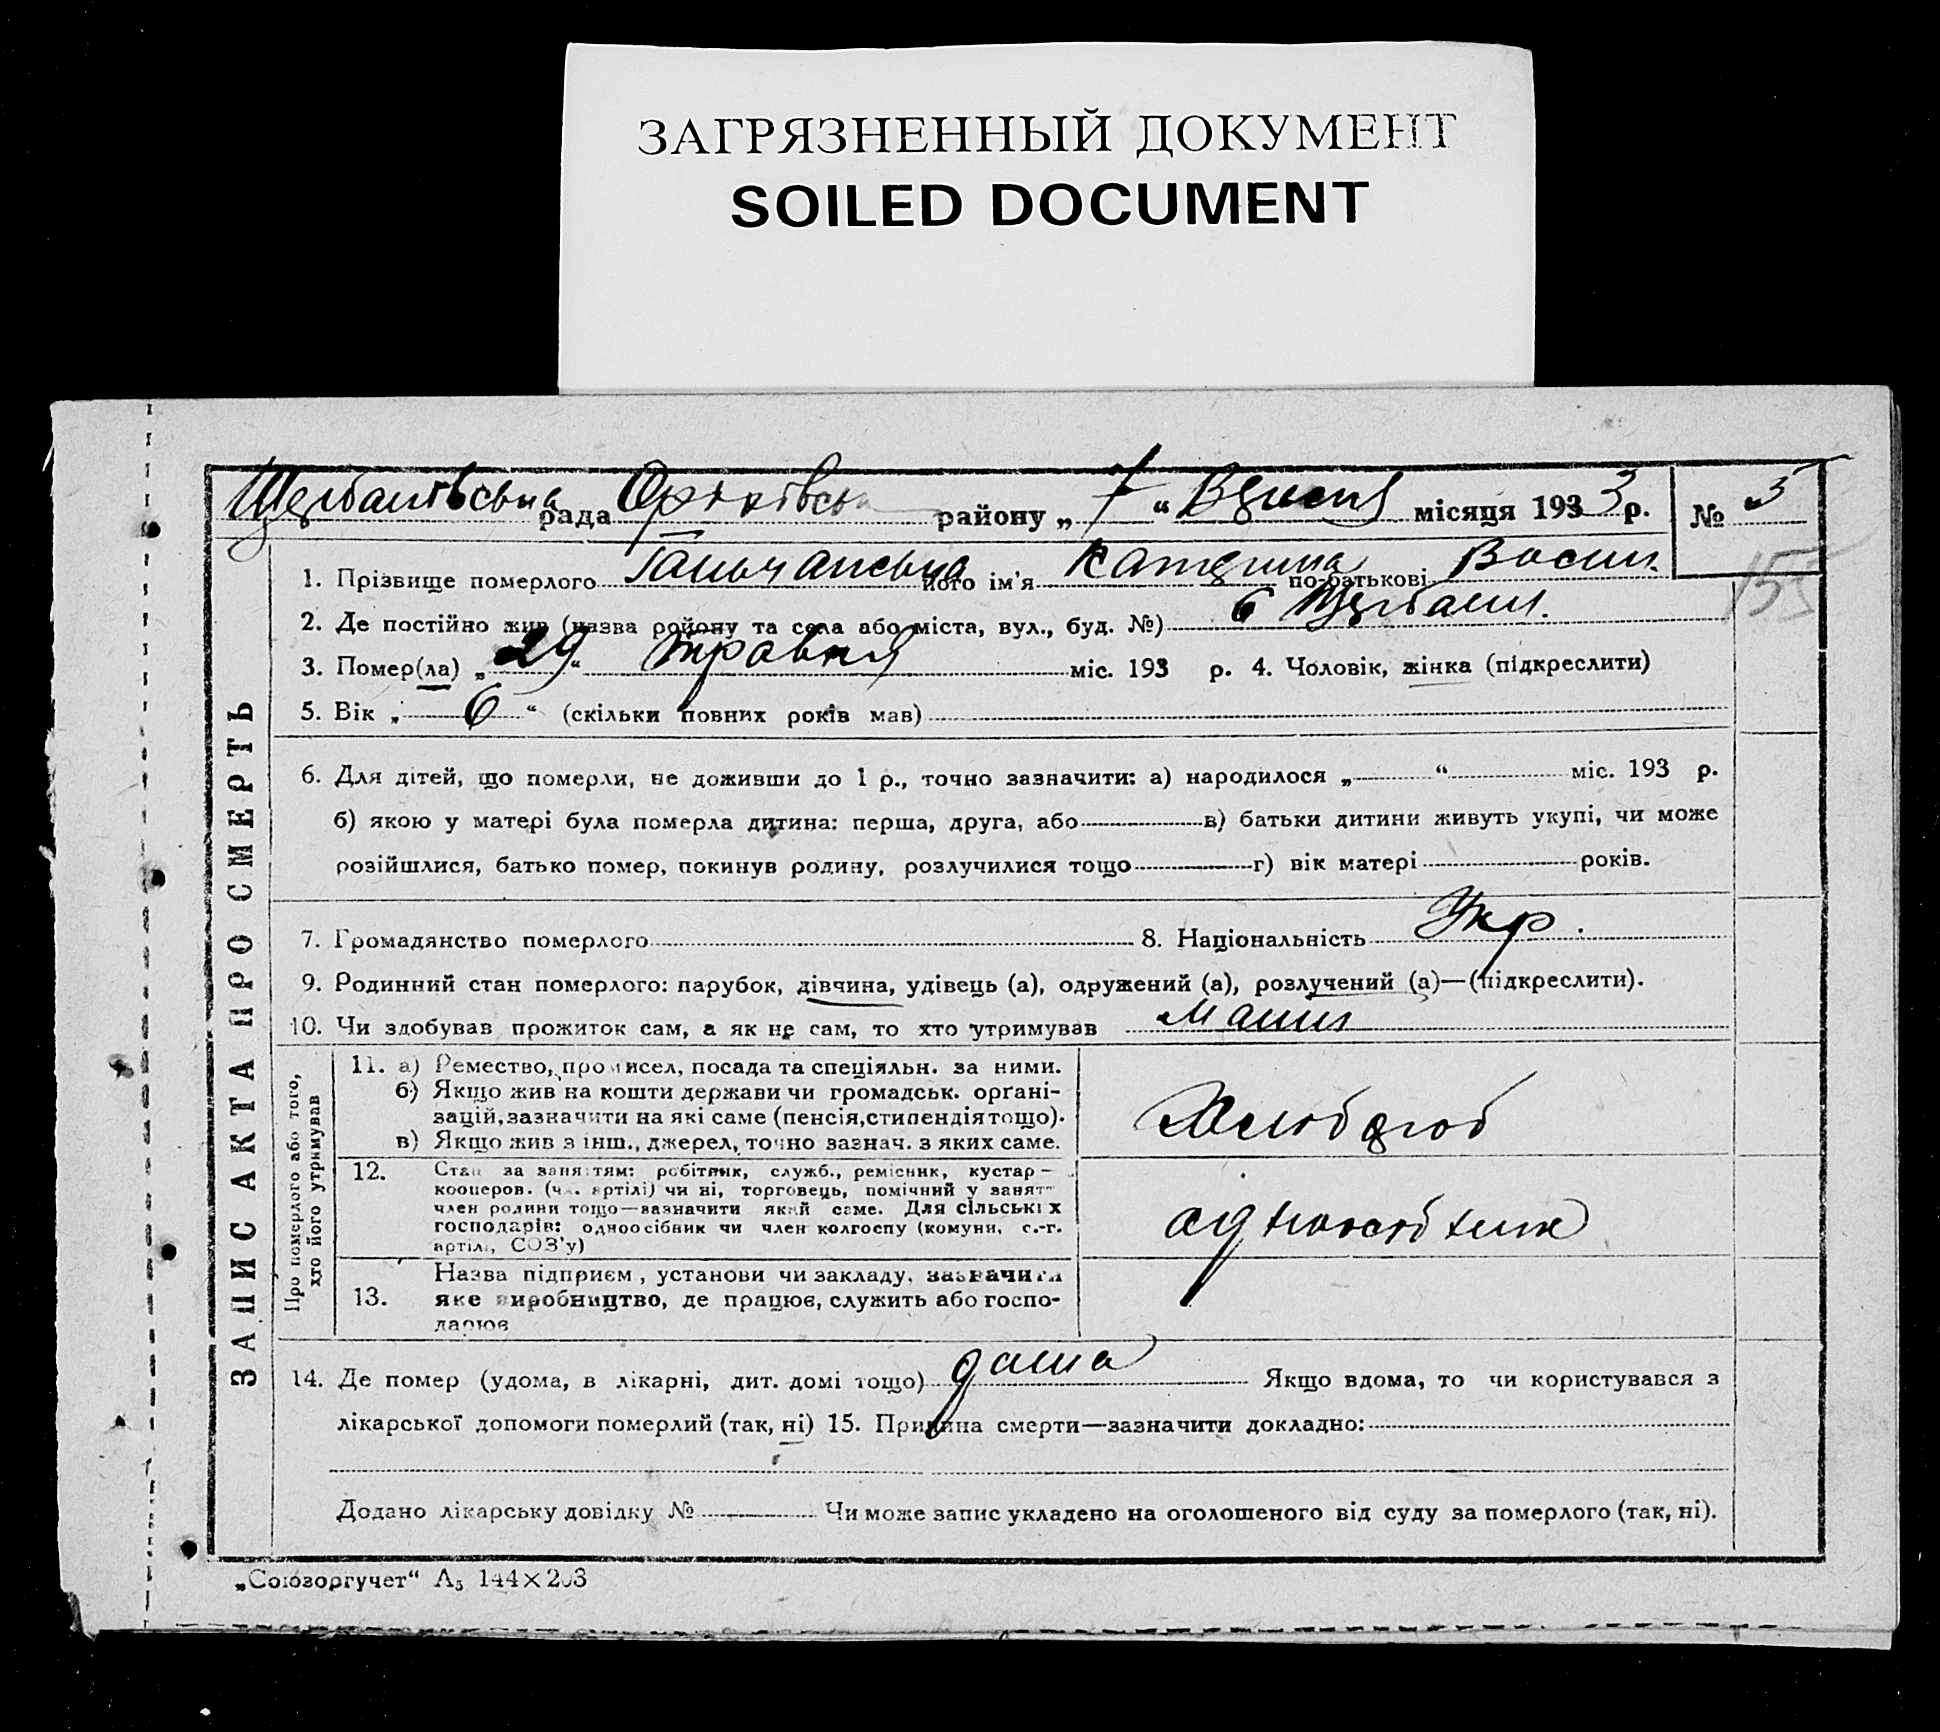 ЗАГРЯЗНЕННЫЙ ДОКУМЕНТ
SOILED DOCUMENT
рада району „ 7 “ місяця 1933 р. № 3
155
1. Прізвище померлого його ім'я Катерина по-батькові Васил.
2. Де постійно жив (назва району та села або міста, вул., буд. №)
3. Помер(ла) „ 29 “ травня міс. 193 р. 4. Чоловік, жінка (підкреслити)
5. Вік „ 6 “ (скільки повних років мав)
6. Для дітей, що померли, не доживши до 1 р., точно зазначити: а) народилося „ “ міс. 193 р.
б) якою у матері була померла дитина: перша, друга, або в) батьки дитини живуть укупі, чи може
розійшлися, батько помер, покинув родину, розлучилися тощо г) вік матері років.
7. Громадянство померлого 8. Національність Укр.
9. Родинний стан померлого: парубок, дівчина, удівець (а), одружений (а), розлучений (а)—(підкреслити).
10. Чи здобував прожиток сам, а як не сам, то хто утримував
ЗАПИС АКТА ПРО СМЕРТЬ
Про померлого або того,
хто його утримував
11. а) Ремество, промисел, посада та спеціяльн. за ними.
б) Якщо жив на кошти держави чи громадськ. органі-
зацій, зазначити на які саме (пенсія, стипендія тощо).
в) Якщо жив з інш., джерел, точно зазнач. з яких саме.
Хлібороб
12. Стан за заняттям: робітник, служб., ремісник, кустар —
кооперов. (чл. артілі) чи ні, торговець, помічний у занятт
член родини тощо—зазначити який саме. Для сільських
господарів: одноосібник чи член колгоспу (комуни, с.-г.
артілі, СОЗ'у)
одноосібник
13. Назва підприєм, установи чи закладу, зазначити
яке виробництво, де працює, служить або госпо-
дарює
14. Де помер (удома, в лікарні, дит. домі тощо) дома Якщо вдома, то чи користувався з
лікарської допомоги померлий (так, ні) 15. Причина смерти—зазначити докладно:
Додано лікарську довідку № Чи може запис укладено на оголошеного від суду за померлого (так, ні).
„Союзоргучет“ А₅ 144×203